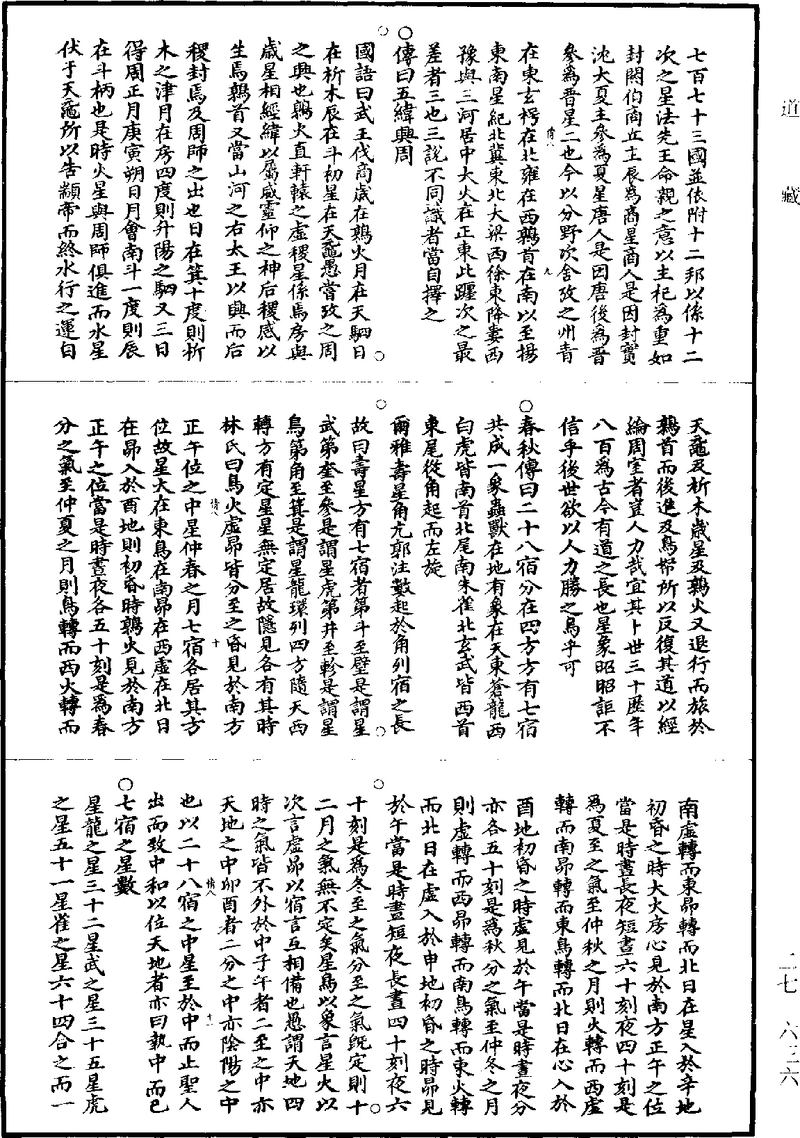 道藏
七百七十三國並依附十二邦以係十二
次之星法先王命親之意以主杞為重如
封閼伯商丘主辰為商星商人是因封實
沈大夏主參為夏星唐人是因唐後為晉
參為晉星二也今以分野次舍攷之州青
在東玄枵在北雍在西鶉首在南以至揚
東南星紀北冀東北大梁西徐東降婁西
豫與三河居中大火在正東此躔次之最
差者三也三說不同識者當自擇之
○傳曰五緯興周
國語曰武王伐商歲在鶉火月在天駟日
在析木辰在斗初星在天黿愚嘗攷之周
之興也鶉火直軒轅之虛稷星係焉房與
歲星相經緯以屬威靈仰之神后稷感以
生焉鶉首又當山河之右太王以興而后
稷封焉及周師之出也日在箕十度則析
木之津月在房四度則升陽之駟又三日
得周正月庚寅朔日月會南斗一度則辰
在斗柄也是時火星與周師俱進而水星
伏于天黿所以告顓帝而終水行之運自
天黿及析木歲星及鶉火又退行而旅於
鶉首而後進及鳥帑所以反復其道以經
綸周室者豈人力哉宜其卜世三十歷年
八百為古今有道之長也星象昭昭詎不
信乎後世欲以人力勝之烏乎可
○春秋傳曰二十八宿分在四方方有七宿
共成一象蟲獸在地有象在天東蒼龍西
白虎皆南首北尾南朱雀北玄武皆西首
東尾從角起而左旋
爾雅壽星角亢郭注數起於角列宿之長
故曰壽星方有七宿者第斗至壁是謂星
武第奎至參是謂星虎第井至軫是謂星
鳥第角至箕是謂星龍環列四方隨天西
轉方有定星星無定居故隱見各有其時
林氏曰鳥火虛昴皆分至之昏見於南方
正午位之中星仲春之月七宿各居其方
位故星火在東鳥在南昴在西虛在北日
在昴入於酉地則初昏時鶉火見於南方
正午之位當是時晝夜各五十刻是為春
分之氣至仲夏之月則鳥轉而西火轉而
南虛轉而東昴轉而北日在星入於辛地
初昏之時大火房心見於南方正午之位
當是時晝長夜短晝六十刻夜四十刻是
為夏至之氣至仲秋之月則火轉而西虛
轉而南昴轉而東鳥轉而北日在心入於
酉地初昏之時虛見於午當是時晝夜分
亦各五十刻是為秋分之氣至仲冬之月
則虛轉而西昴轉而南鳥轉而東火轉
而北日在虛入於申地初昏之時昴見
於午當是時晝短夜長晝四十刻夜六
十刻是為冬至之氣分至之氣既定則十
二月之氣無不定矣星鳥以象言星火以
次言虛昴以宿言互相備也愚謂天地四
時之氣皆不外於中子午者二至之中亦
天地之中卯酉者二分之中亦陰陽之中
也以二十八宿之中星至於中而止聖人
出而致中和以位天地者亦曰執中而已
○七宿之星數
星龍之星三十二星武之星三十五星虎
之星五十一星雀之星六十四合之而一
二七 六三六